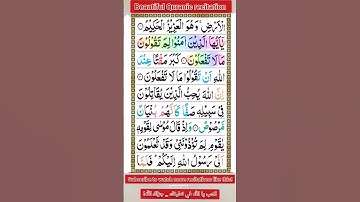 Beautiful Quranic recitation
الْاَرْضِ ۚ وَهُوَ الْعَزِيْزُ الْحَكِيْمُ
يٰۤاَيُّهَا الَّذِيْنَ اٰمَنُوْا لِمَ تَقُوْلُوْنَ
مَا لَا تَفْعَلُوْنَ كَبُرَ مَقْتًا عِنْدَ
اللّٰهِ اَنْ تَقُوْلُوْا مَا لَا تَفْعَلُوْنَ
اِنَّ اللّٰهَ يُحِبُّ الَّذِيْنَ يُقَاتِلُوْنَ
فِيْ سَبِيْلِهٖ صَفًّا كَاَنَّهُمْ بُنْيَانٌ
مَّرْصُوْصٌ وَاِذْ قَالَ مُوْسٰى لِقَوْمِهٖ
يٰقَوْمِ لِمَ تُؤْذُوْنَنِيْ وَقَدْ تَّعْلَمُوْنَ
اَنِّيْ رَسُوْلُ اللّٰهِ اِلَيْكُمْ ؕ فَلَمَّا
Subscribe to watch more recitations like this!
اكتب يا الله في تعليقك - جزاك الله!